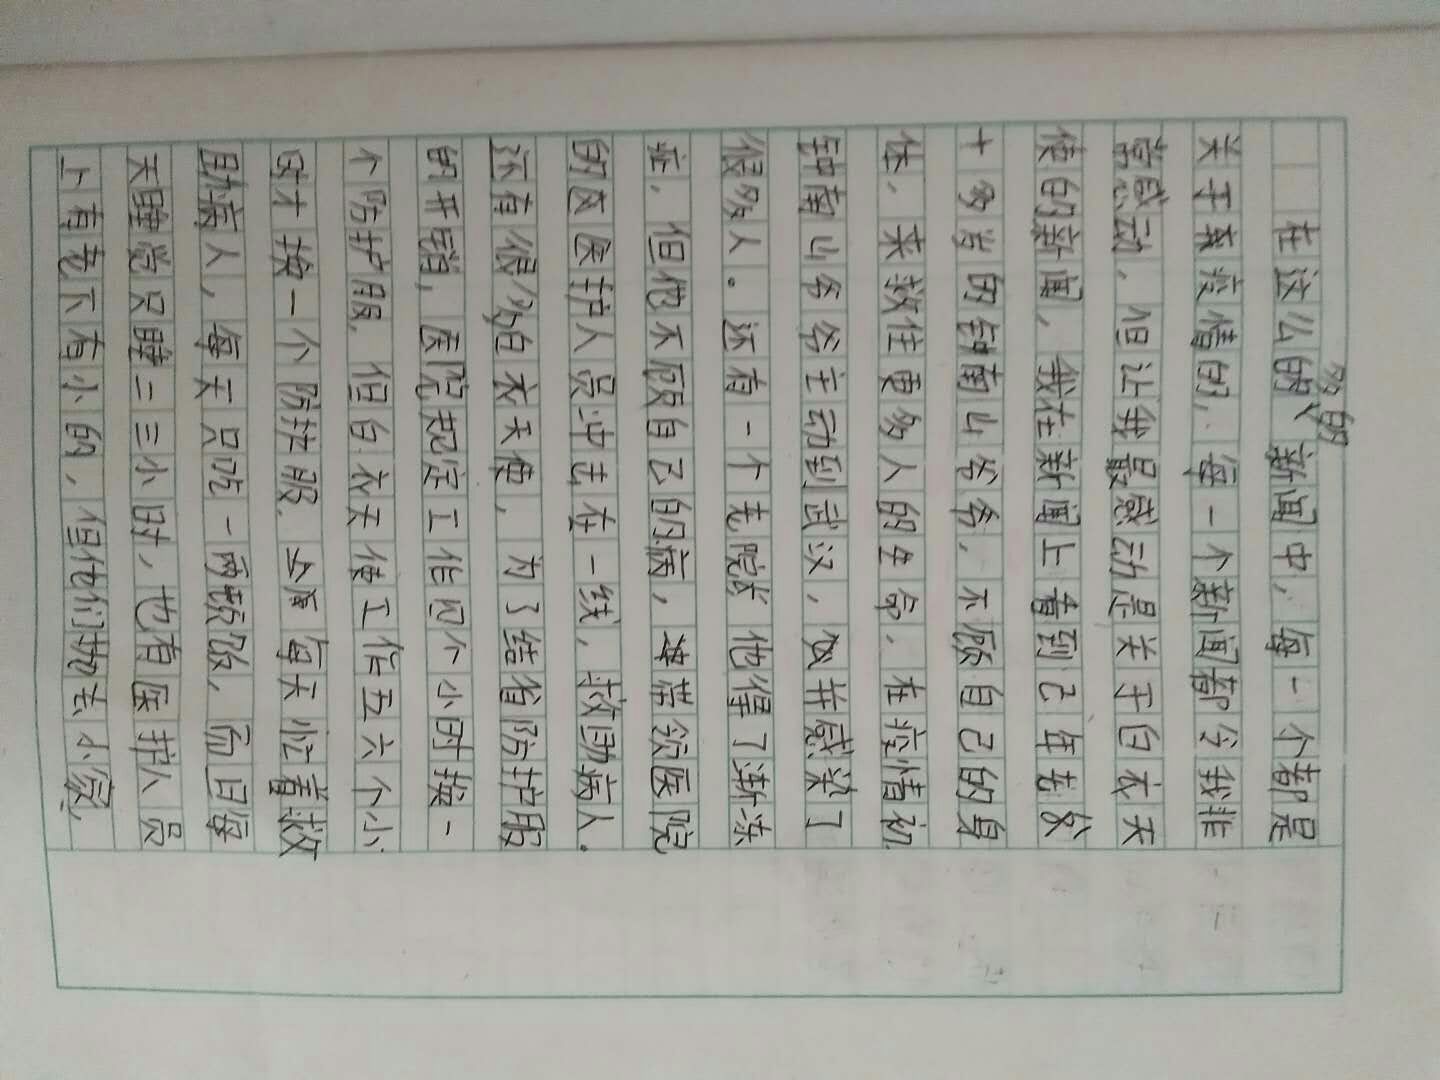 在这么的多的新闻中，每一个都是
关于奏疫情的，每一个新闻都令我非
常感动，但让我最感动是关于白衣天
使的新闻，我在新闻上看到已年老八
十多岁的钟南山爷爷，不顾自己的身
体，来救住更多人的生命，在疫情初
钟南山爷爷主动到武汉，并感染了
很多人。还有一个老院长他得了渐冻
症，但他不顾自己的病，带领医院
的医护人员冲击在一线，救助病人。
还有很多白衣天使，为了结省防护服
的开销，医院规定工作四个小时换一
个防护服，但白衣天使工作五六个小
时才换一个防护服，每天忙着救
助病人，每天只吃一两顿饭，而且每
天睡觉只睡二三小时，也有医护人员
上有老下有小的，但他们为去小家，